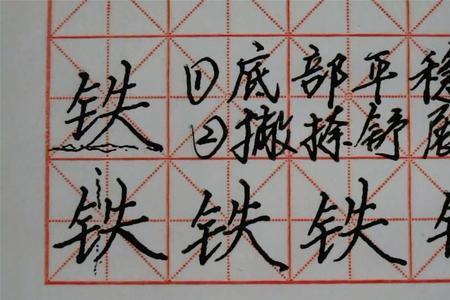 铁
①底部平稳
②撇捺舒展
铁铁铁